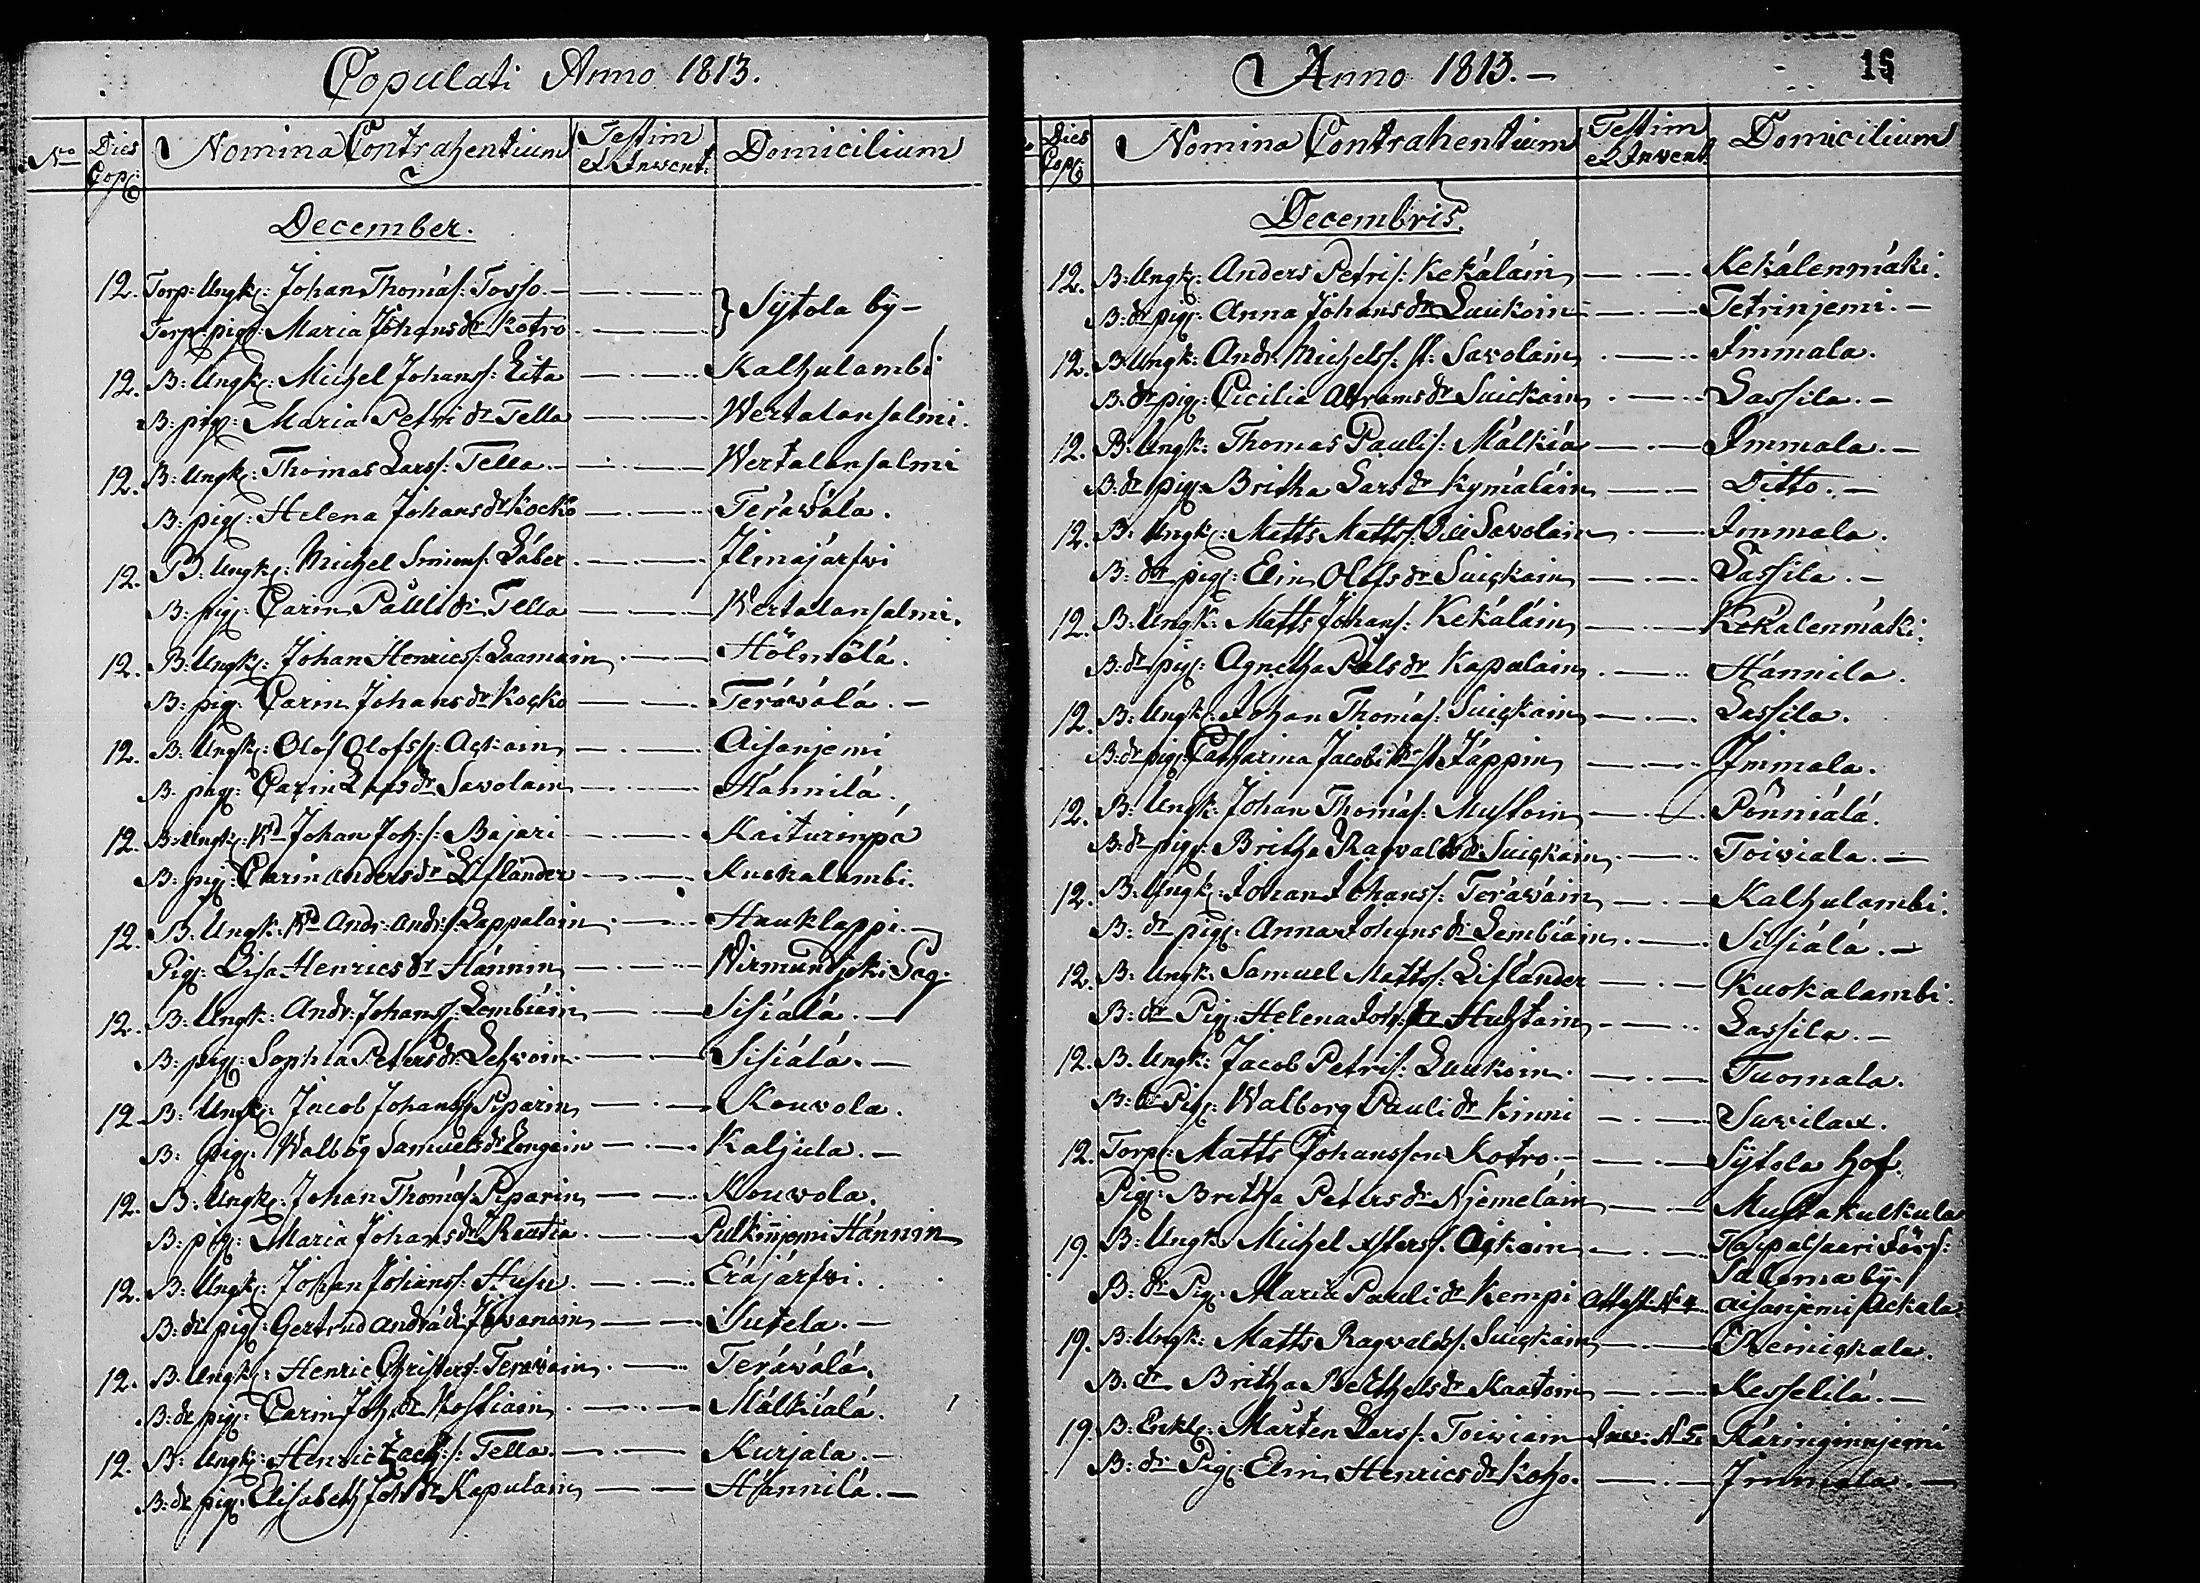 Copulati Anno 1813.
No Dies Cop: Nomina Contrahentium Testim et Invent: Domicilium
December.
12. Torp: Ungk: Johan Thomas: Torsso. Sÿtola bÿ
Torp: pig: Maria Johans dr Kotro
12. B: Ungk: Michel Johans: Eita Kalhulambi
B: pig: Maria Petri dr Tella Wertalansalmi.
12. B: Ungk: Thomas Larss: Tella Wertalansalmi
B: pig: Helena Johans dr Kocko Teräwälä.
12. B: Ungk: Michel Simons: Läber Ilmajärfwi
B: pig: Carin Påuli dr Tella Wertalansalmi.
12. B: Ungk: Johan Henrics: Laamain Hölmölä.
B: pig: Carin Johans dr Kocko Teräwälä.
12. B: Ungk: Olof Olofss: Ackain Aisanjemi
B. pig: Carin Lars dr Savolain Hännilä.
12. B: Ungk: Rd Johan Joh: s: Bajari Kaiturinpä
B. pig: Carin Anders dr Lifländer Kuokalambi.
12. B. Ungk: Rd Andr: Andr: s: Lappalain Hauklappi.
Pig: Lisa Henrics dr Hännin Nirmundjoki Sag.
12. B: Ungk: Andr: Johans: Lembiäin Sisiälä.
B: pig: Sophia Peters dr Lehvoin Sisiälä.
12 B: Ungk: Jacob Johans: Piparin Kouvola.
B: pig: Walbog Samuels dr Kaljula.
12. B: Ungk: Johan Thomas: Piparin Kouvola.
B: pig: Maria Johans dr Raatia Pulkinjemi Hännin
12. B: Ungk: Johan Johans: Husu Eräjärfwi.
B: dr pig: Gertrud Andrä dr Ihvanain Sutela.
12. B. Ungk: Henric Christers: Teräwäin Teräwälä.
B: dr pig: Carin Joh: dr Kostiain Mälkiälä.
12. B: Ungk: Henric Zach: s: Tella. Kurjala.
B: dr pig: Elisabeth Joh: dr Kapulain Hännilä.
Anno 1813. 15
Dies Cop: Nomina Contrahentium Testim et Invent: Domicilium
Decembris.
12. B: Ungk: Anders Petris: Kekäläin Kekälenmäki.
B: dr pig: Anna Johans dr Laukoin Tetrinjemi.
12. B: Ungk: Andr. Michels: st: Savolain Immala.
B: dr pig: Cicilia Abrams dr Suickain Lassila.
12. B: Ungk: Thomas Pauli s: Mälkiä Immala.
B: dr pig: Britha Lars dr Kymäläin Ditto.
12. B: Ungk: Matts Matts: Savolain Immala.
B: dr pig: Elin Olofs dr Suickain Lassila.
12. B: Ungk: Matts Johans: Kekäläin Kekälenmäki.
B: dr pig: Agnetha Påls dr Kapulain Hännila.
12. B: Ungk: Johan Thomas: Suickain Lassila.
B: dr pig: Catharina Jacobi dr st Läppin Immala.
12. B: Ungk: Johan Thomas: Mustoin Pönniälä.
B: dr pig: Britha Ragvalds dr Suickain Toiviala.
12. B: Ungk: Johan Johans: Teräwäin Kalhulambi.
B: dr pig: Anna Johans dr Lembiäin Sisiälä.
12. B: Ungk: Samuel Matts: Lifländer Kuokalambi.
B: dr Pig: Helena Joh: dr Huhtain Lassila.
12. B. Ungk: Jacob Petris: Laukoin. Tuomala.
B: dr Pig: Walborg Pauli dr Kinni Suvilax.
12. Torp: Matts Johansson Kotro. Sÿtola Hof.
Pig: Britha Peters dr Njemeläin Mustakulkula
19. B: Ungk: Michel Xsters: Ackain Taipalsaari Förs: Salomaa bÿ.
B: dr Pig: Maria Pauli dr Kempi Attest: No 4. Aisanjemi Ackala
19. B: Ungk: Matts Ragvalds: Suickain Remickala.
B: dr Britha Berthels dr Kaatoin Kesselilä.
19. B: Enkl: Mårten Larss: Toiwiain Inv: No 5. Käringinnjemi
B: dr Pig: Elin Henrics dr Koho. Immala.